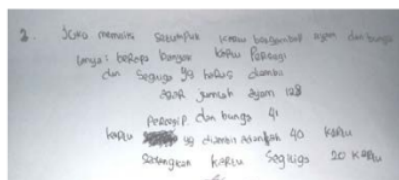 2. Joko memiliki setumpuk kartu bergambar ayam dan bunga
tanya: berapa banyak kartu Persegi
dan Segiga yg harus diambil
agar jumlah ayam 128
Persegi P. dan bunga 41
kartu yg diambil adalah 40 kartu
Sedangkan kartu Segitiga 20 kartu